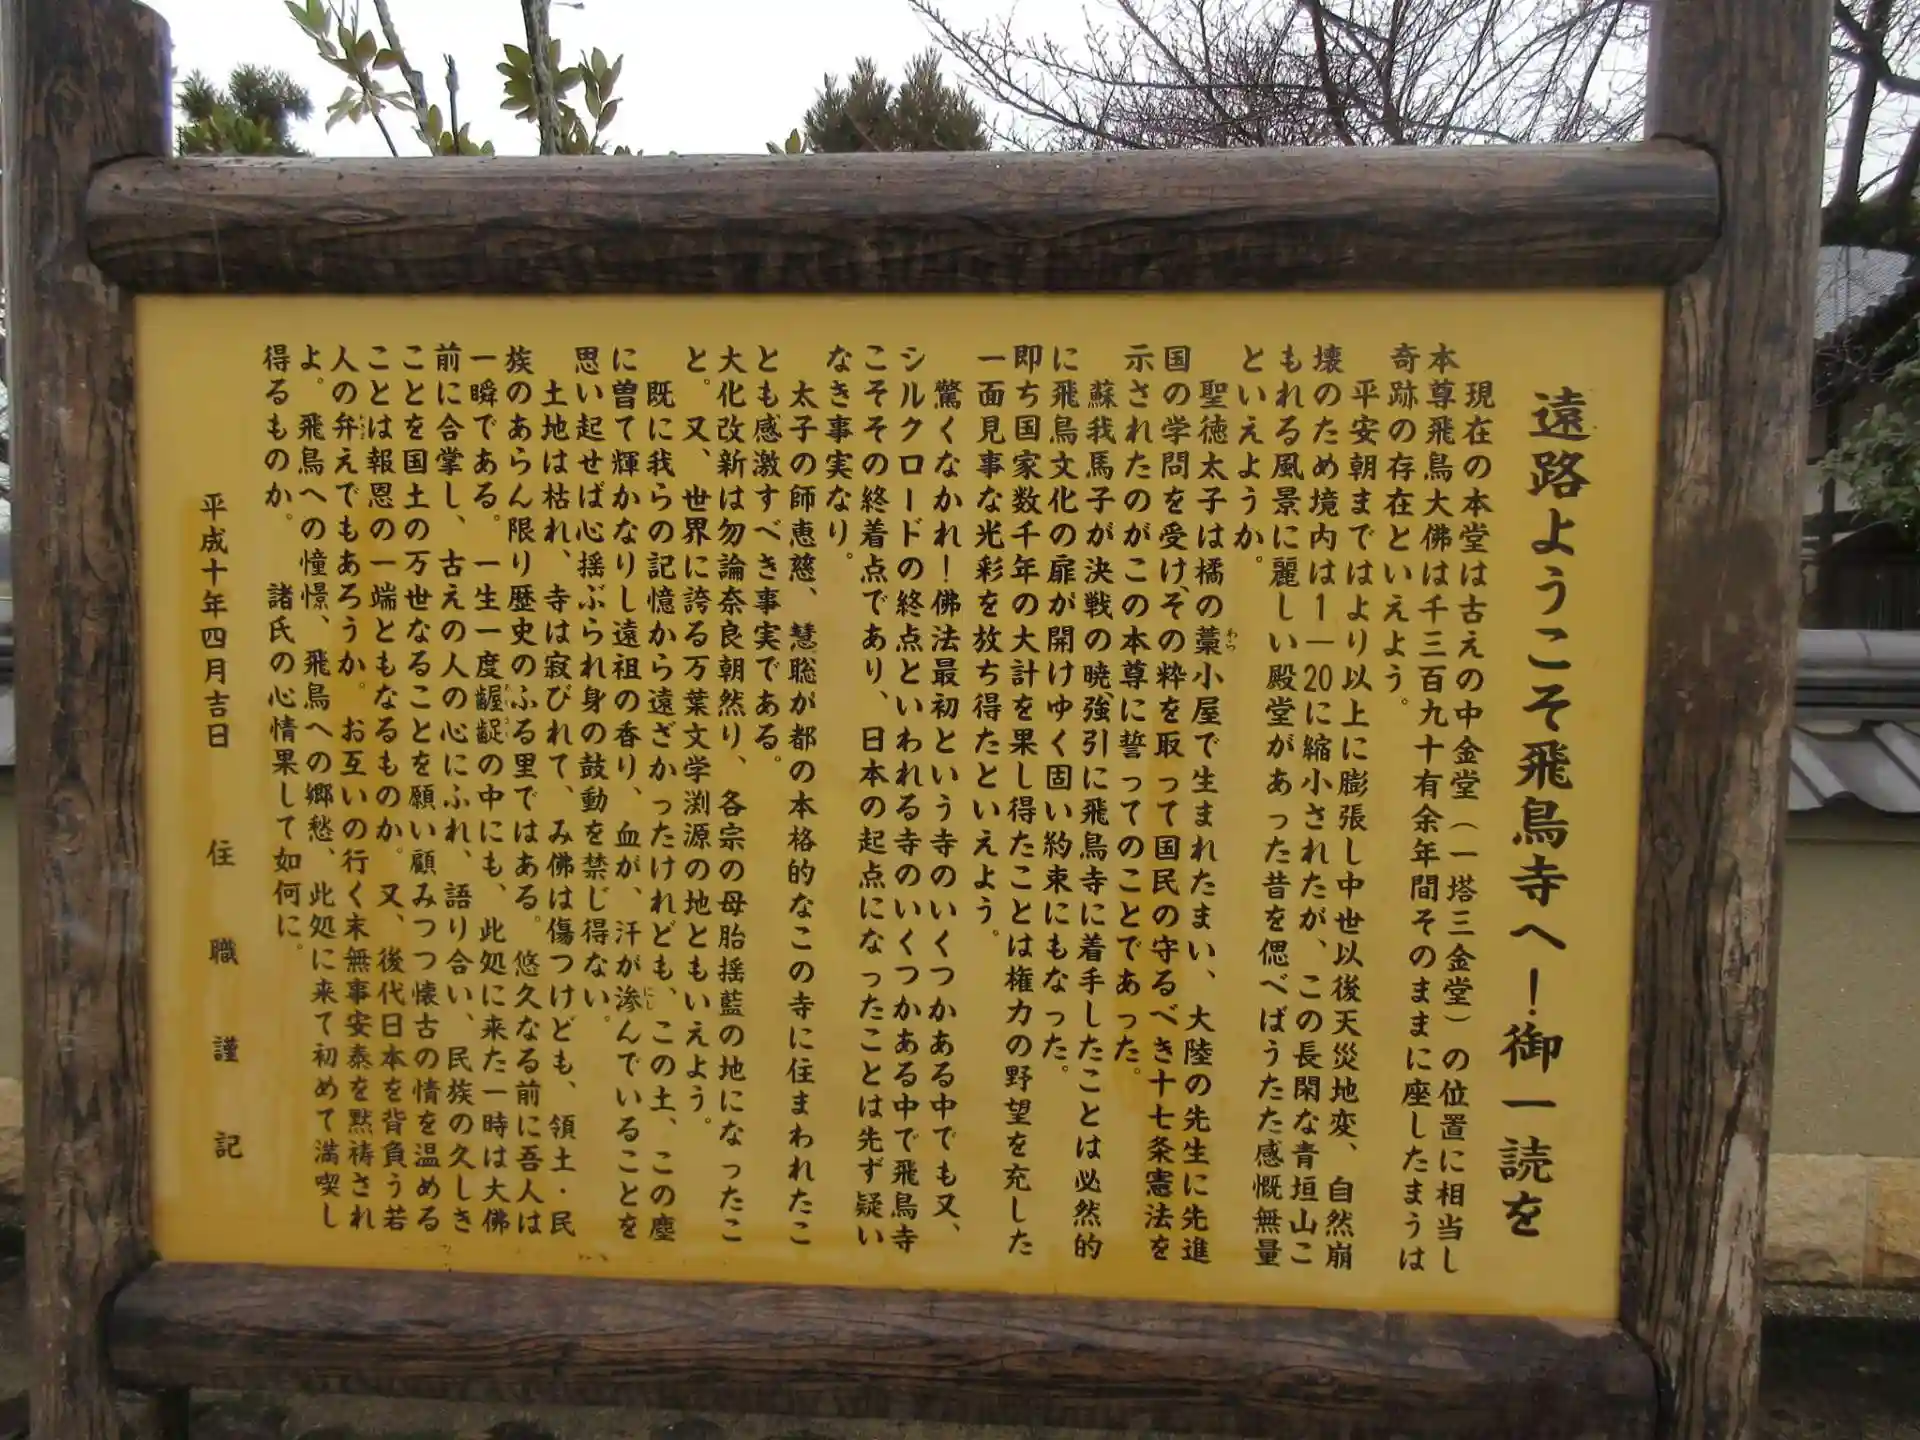 遠路ようこそ飛鳥寺へ！御一読を
現在の本堂は古えの中金堂（一塔三金堂）の位置に相当し
本尊飛鳥大佛は千三百九十有余年間そのままに座したまうは
奇跡の存在といえよう。
平安朝まではより以上に膨張し中世以後天災地変、自然崩
壊のため境内は1—20に縮小されたが、この長閑な青垣山こ
もれる風景に麗しい殿堂があった昔を偲べばうたた感慨無量
といえようか。
聖徳太子は橘の藁小屋で生まれたまい、大陸の先生に先進
国の学問を受け、その粋を取って国民の守るべき十七条憲法を
示されたのがこの本尊に誓ってのことであった。
蘇我馬子が決戦の暁強引に飛鳥寺に着手したことは必然的
に飛鳥文化の扉が開けゆく固い約束にもなった。
即ち国家数千年の大計を果し得たことは権力の野望を充した
一面見事な光彩を放ち得たといえよう。
驚くなかれ！佛法最初という寺のいくつかある中でも又、
シルクロードの終点といわれる寺のいくつかある中で飛鳥寺
こそその終着点であり、日本の起点になったことは先ず疑い
なき事実なり。
太子の師恵慈、慧聡が都の本格的なこの寺に住まわれたこ
とも感激すべき事実である。
大化改新は勿論奈良朝然り、各宗の母胎揺藍の地になったこ
と。又、世界に誇る万葉文学渕源の地ともいえよう。
既に我らの記憶から遠ざかったけれども、この土、この塵
に曽て輝かなりし遠祖の香り、血が、汗が滲んでいることを
思い起せば心揺ぶられ身の鼓動を禁じ得ない。
土地は枯れ、寺は寂びれて、み佛は傷つけども、領土・民
族のあらん限り歴史のふる里ではある。悠久なる前に吾人は
一瞬である。一生一度齷齪の中にも、此処に来た一時は大佛
前に合掌し、古えの人の心にふれ、語り合い、民族の久しき
ことを国土の万世なることを願い顧みつつ懐古の情を温める
ことは報恩の一端ともなるものか。又、後代日本を背負う若
人の弁えでもあろうか。お互いの行く末無事安泰を黙祷され
よ。飛鳥への憧憬、飛鳥への郷愁、此処に来て初めて満喫し
得るものか。　諸氏の心情果して如何に。
平成十年四月吉日　住職謹記